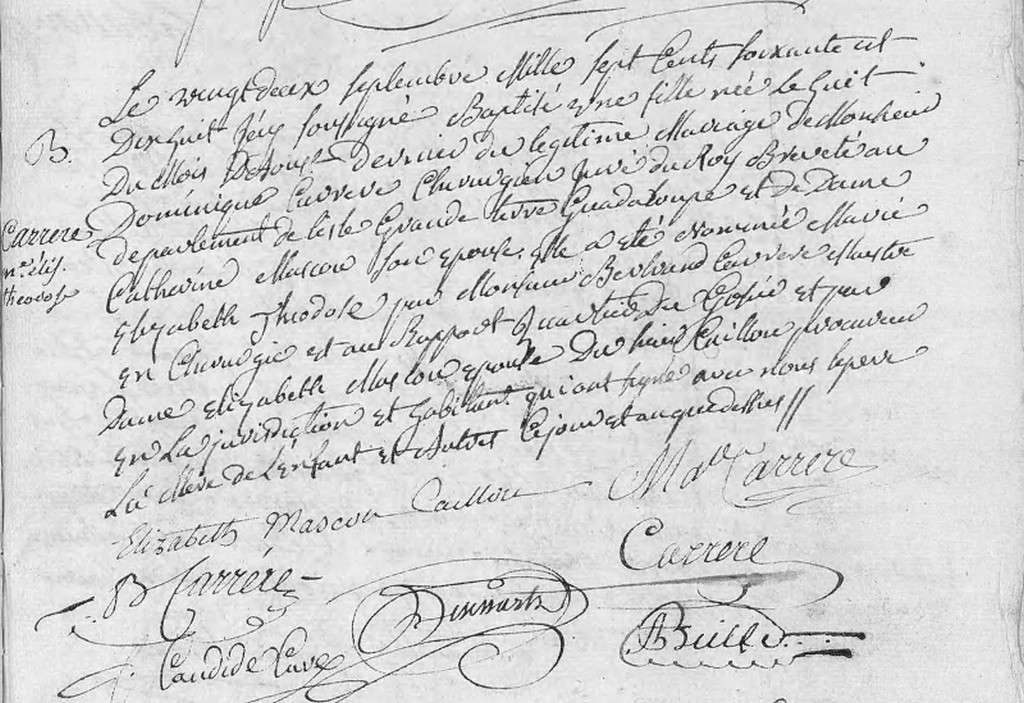 Le vingt deux Septembre Mille Sept Cents Soixante et
B.
Dixhuit J'ay Soussigné Baptisé une fille née le huit
Du Mois D'Aoust Dernier du legitime Mariage de Monsieur
Carrere
me. élis.
theodose
Dominique Carrere Chirurgien Juré du Roy Breveté au
departement de l'isle Grande terre Guadaloupe et de Dame
Catherine Mascou Son epouse. elle a eté Nommée Marie
Elizabeth Theodose par Monsieur Bertrand Carrère Maitre
en Chirurgie et au Rapport Quartier du Gozié et par
Dame Elizabeth Mascou epouse Du Sieur Caillou procureur
en La jurisdiction et habitant qui ont signé avec nous le pere
La Mere de L'enfant et Autres Ce jour et an que dessus //
Elizabeth Mascou Caillou
Carrere
B Carrére
Carrere
Candide Curé